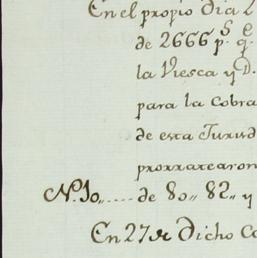 En el propio dia 2
de 2666 p.s q.e
la Viesca y D.
para la Cobra
de esta Jurisd
prorratearon
N.º 10,,..... de 80,, 82,, y
En 27 de Dicho Co